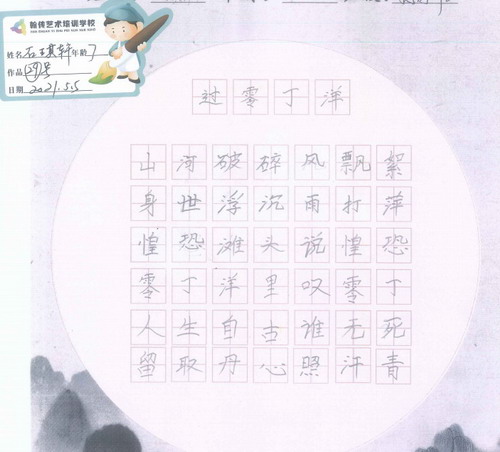 翰传艺术培训学校
姓名 年龄 7
作品
日期 2021.5.5
过零丁洋
山河破碎风飘絮
身世浮沉雨打萍
惶恐滩头说惶恐
零丁洋里叹零丁
人生自古谁无死
留取丹心照汗青